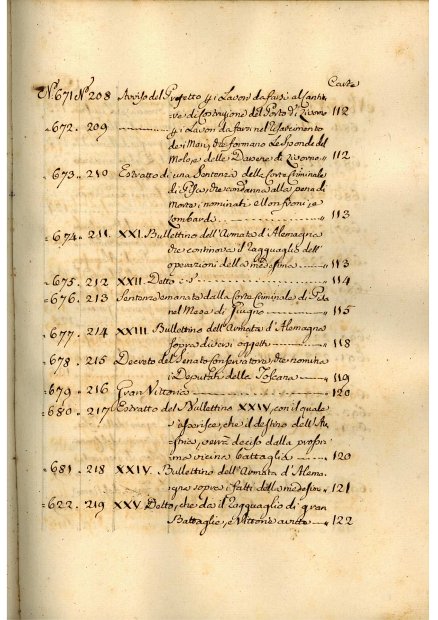 Carte
N.º 671 N.º 208 Avviso del Progetto p. i Lavori da farsi al Canti-
re di Costruzione del Porto di Livorno 112
672. 209 p. i Lavori da farsi nel Risarcimento
dei Mori, che formano le Sponde del
Molo, e delle Darsene di Livorno 112
673. 210 Estratto di una Sentenza della Corte Criminale
di Pisa, che condanna alla pena di
Morte i nominati Ellonfroni, e
Lombardi 113
674. 211. XXI. Bullettino dell'Armata d'Alemagna
che continova il Ragguaglio dell'
operazioni della medesima 113
675. 212 XXII. Detto 114
676. 213 Sentenze emanate dalla Corte Criminale di Pisa
nel Mese di Giugno 115
677. 214 XXIII. Bullettino dell'Armata d'Alemagna
sopra diversi oggetti 118
678. 215 Decreto del Senato Conservatore, che nomina
i Deputati della Toscana 119
679. 216 Gran Vittoria 120
680. 217 Estratto del Bullettino XXIV, con il quale
s'apprisce, che il destino dell'Au-
stria, verrà deciso dalla prossi-
ma vicina battaglia 120
681. 218 XXIV. Bullettino dell'Armata d'Alema-
gna sopra i fatti della medesima 121
622. 219 XXV. Detto, che dà il Ragguaglio di gran
Battaglie, e Vittorie avute 122